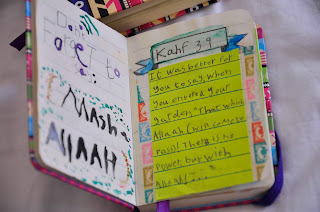 Don't
Forget to
Mash-
Allaah
Kahf 39
It was better for
you to say, when
you entered your
garden, "That which
Allaah (swt)
pass! There is no
power but with
Allaah!